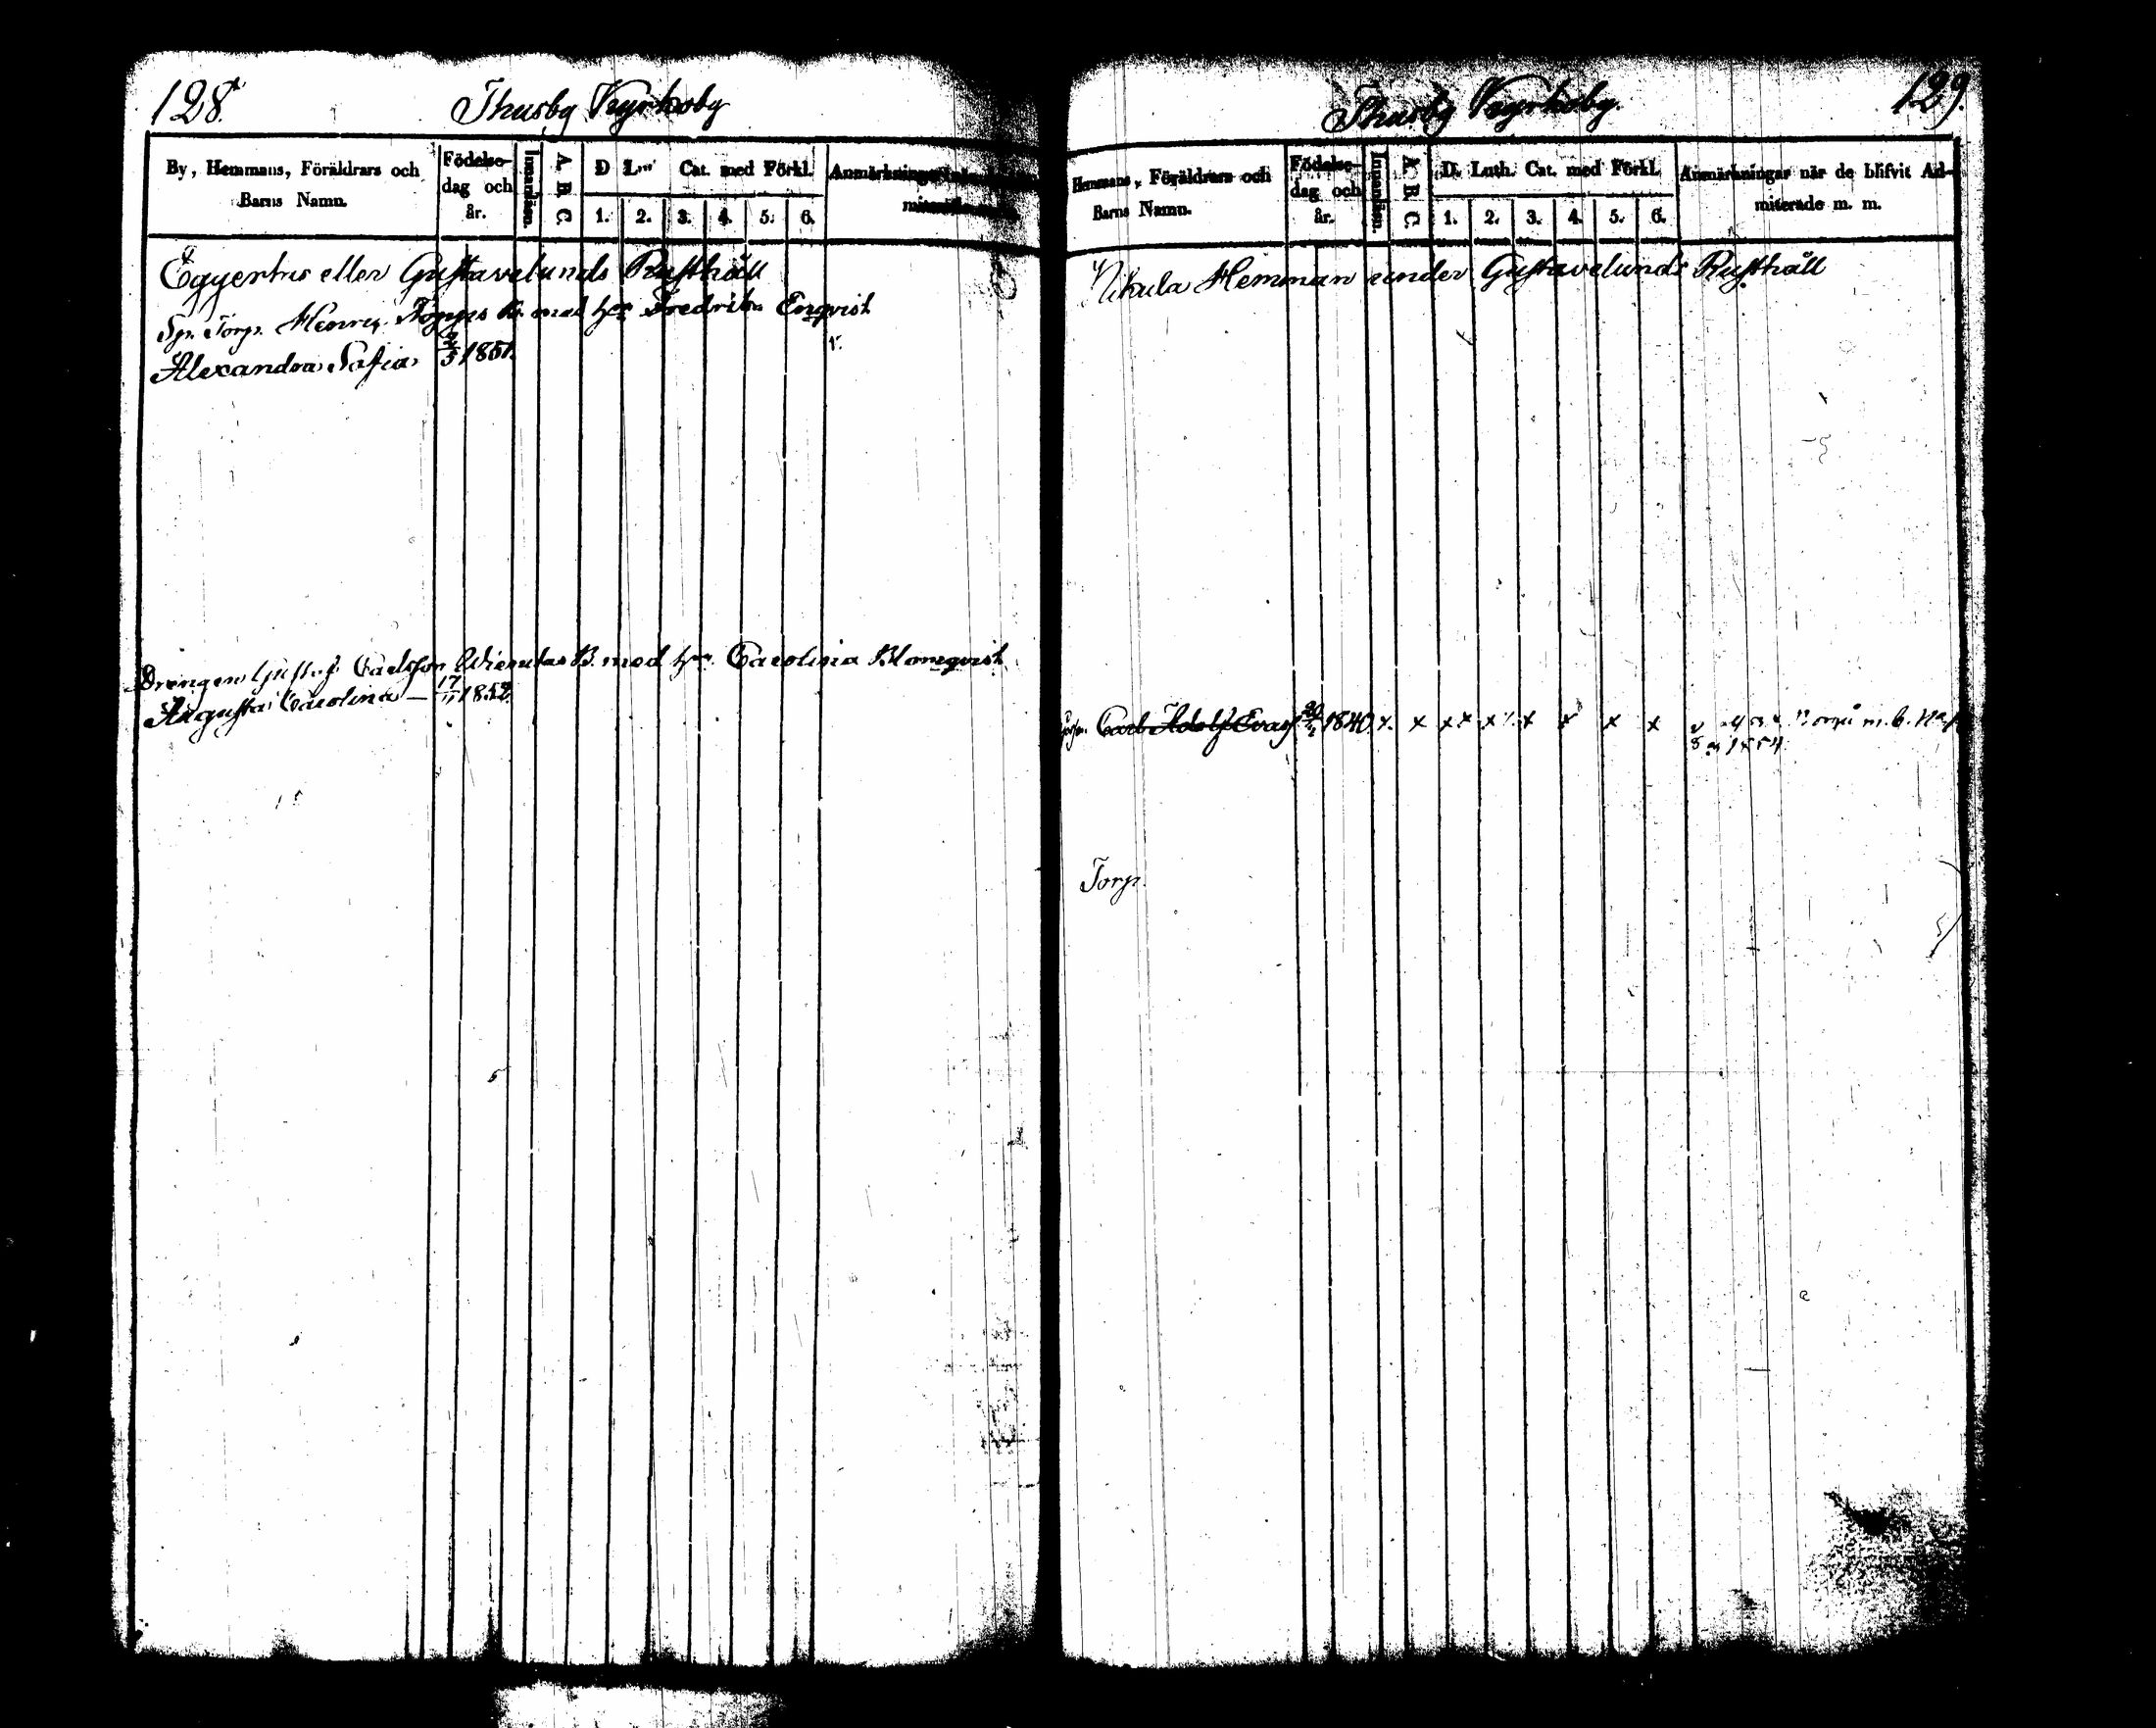 128.
Thusby Kyrkoby
By, Hemmans, Föräldrars och Barns Namn.
Födelse-dag och år.
Innanläsn.
A B C
D L Cat. med Förkl.
1. 2. 3. 4. 5. 6.
Anmärkningar
Eggertus eller Gustavelunds Rusthåll
Sp. Torp. Henric B. med Fredrika Enqvist
Alexandra Sofia 1851.
Drengen Gustaf Carlsson B. med Carolina Blomqvist
Augusta Carolina — 17/11 1852
129.
Thusby Kyrkoby.
Hemmans, Föräldrars och Barns Namn.
Födelse-dag och år.
Innanläsn.
A B C
D. Luth. Cat. med Förkl.
1. 2. 3. 4. 5. 6.
Anmärkningar när de blifvit Admiterade m. m.
Nikula Hemman under Gustavelunds Rusthåll
Carl Adolf 1840. x x x x x x x x x 1854
Torp.